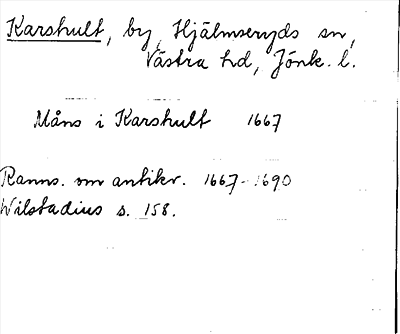 Karshult, by, Hjälmseryds sn,
Västra hd, Jönk. l.
Måns i Karshult 1667
Ranns. om antikv. 1667-1690
Wilstadius s. 158.